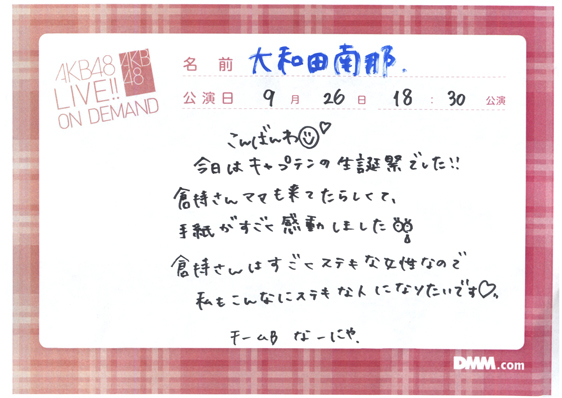 AKB48
LIVE!!
ON DEMAND
AKB
48
名前 大和田南那.
公演日 9月26日 18:30公演
こんばんわ
今日はキャプテンの生誕祭でした!!
倉持さんママも来てたらしくて、
手紙がすごく感動しました
倉持さんはすごくステキな女性なので
私もこんなにステキな人になりたいです♡。
チームB なーにゃ.
DMM.com